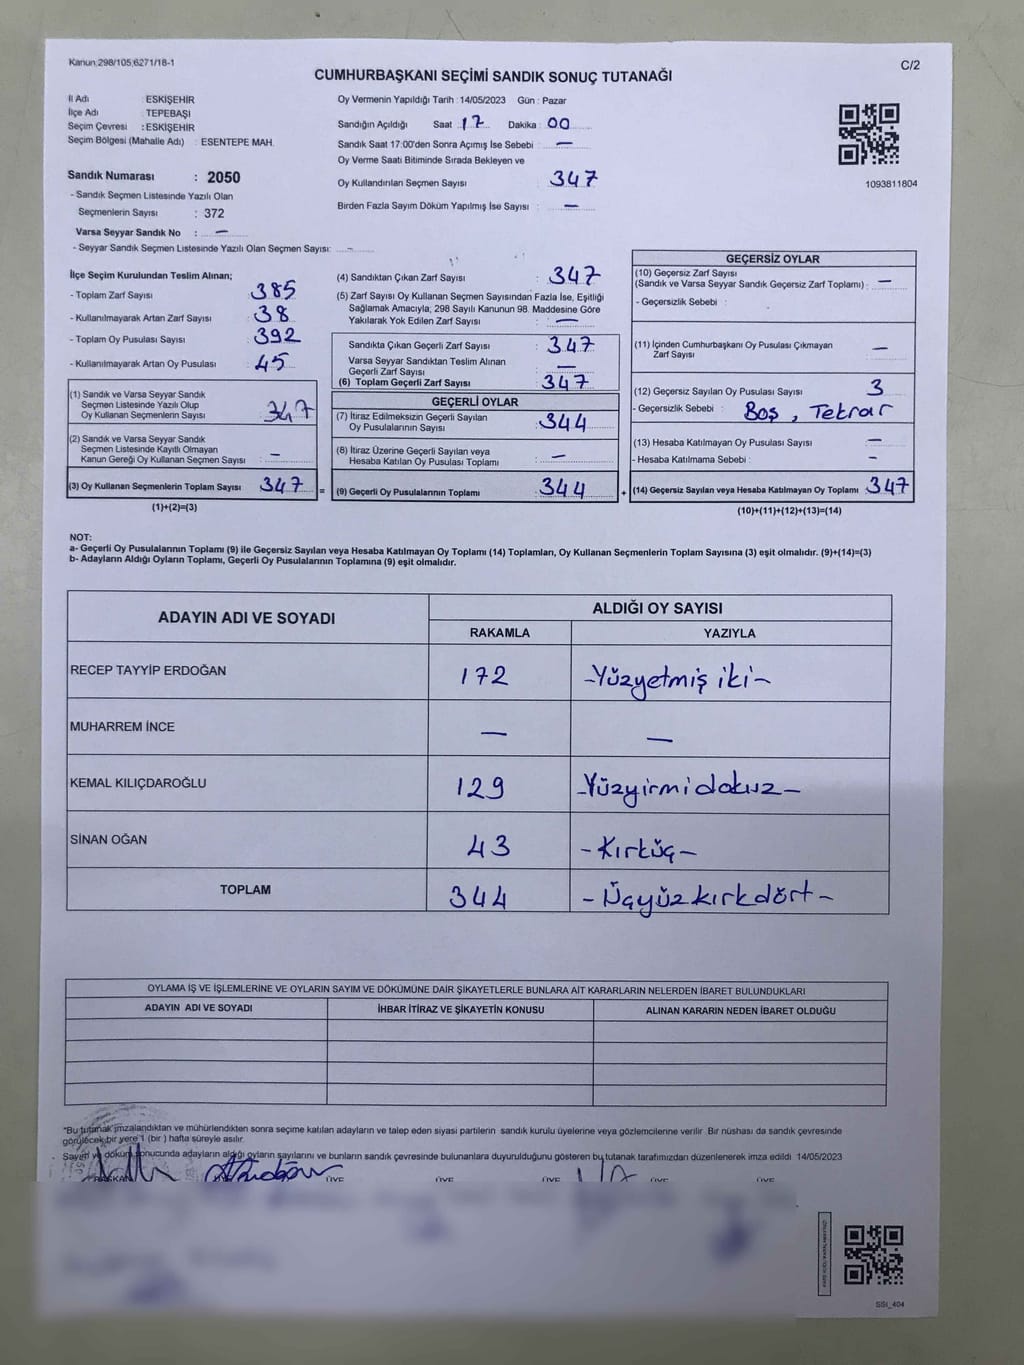 Kanun:298/105,6271/18-1
C/2
CUMHURBAŞKANI SEÇİMİ SANDIK SONUÇ TUTANAĞI
İl Adı : ESKİŞEHİR
İlçe Adı : TEPEBAŞI
Seçim Çevresi : ESKİŞEHİR
Seçim Bölgesi (Mahalle Adı) : ESENTEPE MAH.
Sandık Numarası : 2050
- Sandık Seçmen Listesinde Yazılı Olan
Seçmenlerin Sayısı : 372
Varsa Seyyar Sandık No : —
- Seyyar Sandık Seçmen Listesinde Yazılı Olan Seçmen Sayısı: –
Oy Vermenin Yapıldığı Tarih : 14/05/2023 Gün : Pazar
Sandığın Açıldığı Saat : 17 Dakika : 00
Sandık Saat 17:00'den Sonra Açımış İse Sebebi : —
Oy Verme Saati Bitiminde Sırada Bekleyen ve
Oy Kullandırılan Seçmen Sayısı : 347
Birden Fazla Sayım Döküm Yapılmış İse Sayısı : —
1093811804
İlçe Seçim Kurulundan Teslim Alınan;
- Toplam Zarf Sayısı : 385
- Kullanılmayarak Artan Zarf Sayısı : 38
- Toplam Oy Pusulası Sayısı : 392
- Kullanılmayarak Artan Oy Pusulası : 45
(1) Sandık ve Varsa Seyyar Sandık
Seçmen Listesinde Yazılı Olup
Oy Kullanan Seçmenlerin Sayısı : 347
(2) Sandık ve Varsa Seyyar Sandık
Seçmen Listesinde Kayıtlı Olmayan
Kanun Gereği Oy Kullanan Seçmen Sayısı : –
(3) Oy Kullanan Seçmenlerin Toplam Sayısı 347 =
(1)+(2)=(3)
(4) Sandıktan Çıkan Zarf Sayısı : 347
(5) Zarf Sayısı Oy Kullanan Seçmen Sayısından Fazla İse, Eşitliği
Sağlamak Amacıyla; 298 Sayılı Kanunun 98. Maddesine Göre
Yakılarak Yok Edilen Zarf Sayısı : —
Sandıkta Çıkan Geçerli Zarf Sayısı : 347
Varsa Seyyar Sandıktan Teslim Alınan
Geçerli Zarf Sayısı : —
(6) Toplam Geçerli Zarf Sayısı : 347
GEÇERLİ OYLAR
(7) İtiraz Edilmeksizin Geçerli Sayılan
Oy Pusulalarının Sayısı : 344
(8) İtiraz Üzerine Geçerli Sayılan veya
Hesaba Katılan Oy Pusulası Toplamı : —
(9) Geçerli Oy Pusulalarının Toplamı : 344 +
GEÇERSİZ OYLAR
(10) Geçersiz Zarf Sayısı
(Sandık ve Varsa Seyyar Sandık Geçersiz Zarf Toplamı) : —
- Geçersizlik Sebebi :
(11) İçinden Cumhurbaşkanı Oy Pusulası Çıkmayan
Zarf Sayısı : —
(12) Geçersiz Sayılan Oy Pusulası Sayısı : 3
- Geçersizlik Sebebi : Boş , Tekrar
(13) Hesaba Katılmayan Oy Pusulası Sayısı : —
- Hesaba Katılmama Sebebi : –
(14) Geçersiz Sayılan veya Hesaba Katılmayan Oy Toplamı : 347
(10)+(11)+(12)+(13)=(14)
NOT:
a- Geçerli Oy Pusulalarının Toplamı (9) ile Geçersiz Sayılan veya Hesaba Katılmayan Oy Toplamı (14) Toplamları, Oy Kullanan Seçmenlerin Toplam Sayısına (3) eşit olmalıdır. (9)+(14)=(3)
b- Adayların Aldığı Oyların Toplamı, Geçerli Oy Pusulalarının Toplamına (9) eşit olmalıdır.
ADAYIN ADI VE SOYADI ALDIĞI OY SAYISI
RAKAMLA YAZIYLA
RECEP TAYYİP ERDOĞAN 172 -Yüzyetmiş iki-
MUHARREM İNCE — —
KEMAL KILIÇDAROĞLU 129 -Yüzyirmidokuz-
SİNAN OĞAN 43 -Kırküç-
TOPLAM 344 -Üçyüzkırkdört-
OYLAMA İŞ VE İŞLEMLERİNE VE OYLARIN SAYIM VE DÖKÜMÜNE DAİR ŞİKAYETLERLE BUNLARA AİT KARARLARIN NELERDEN İBARET BULUNDUKLARI
ADAYIN ADI VE SOYADI İHBAR İTİRAZ VE ŞİKAYETİN KONUSU ALINAN KARARIN NEDEN İBARET OLDUĞU
*Bu tutanak imzalandıktan ve mühürlendikten sonra seçime katılan adayların ve talep eden siyasi partilerin sandık kurulu üyelerine veya gözlemcilerine verilir. Bir nüshası da sandık çevresinde
görülecek bir yere 1 (bir ) hafta süreyle asılır.
Sayım ve döküm sonucunda adayların aldığı oyların sayılarını ve bunların sandık çevresinde bulunanlara duyurulduğunu gösteren bu tutanak tarafımızdan düzenlenerek imza edildi. 14/05/2023
BAŞKAN ÜYE ÜYE ÜYE ÜYE ÜYE
SSI_404